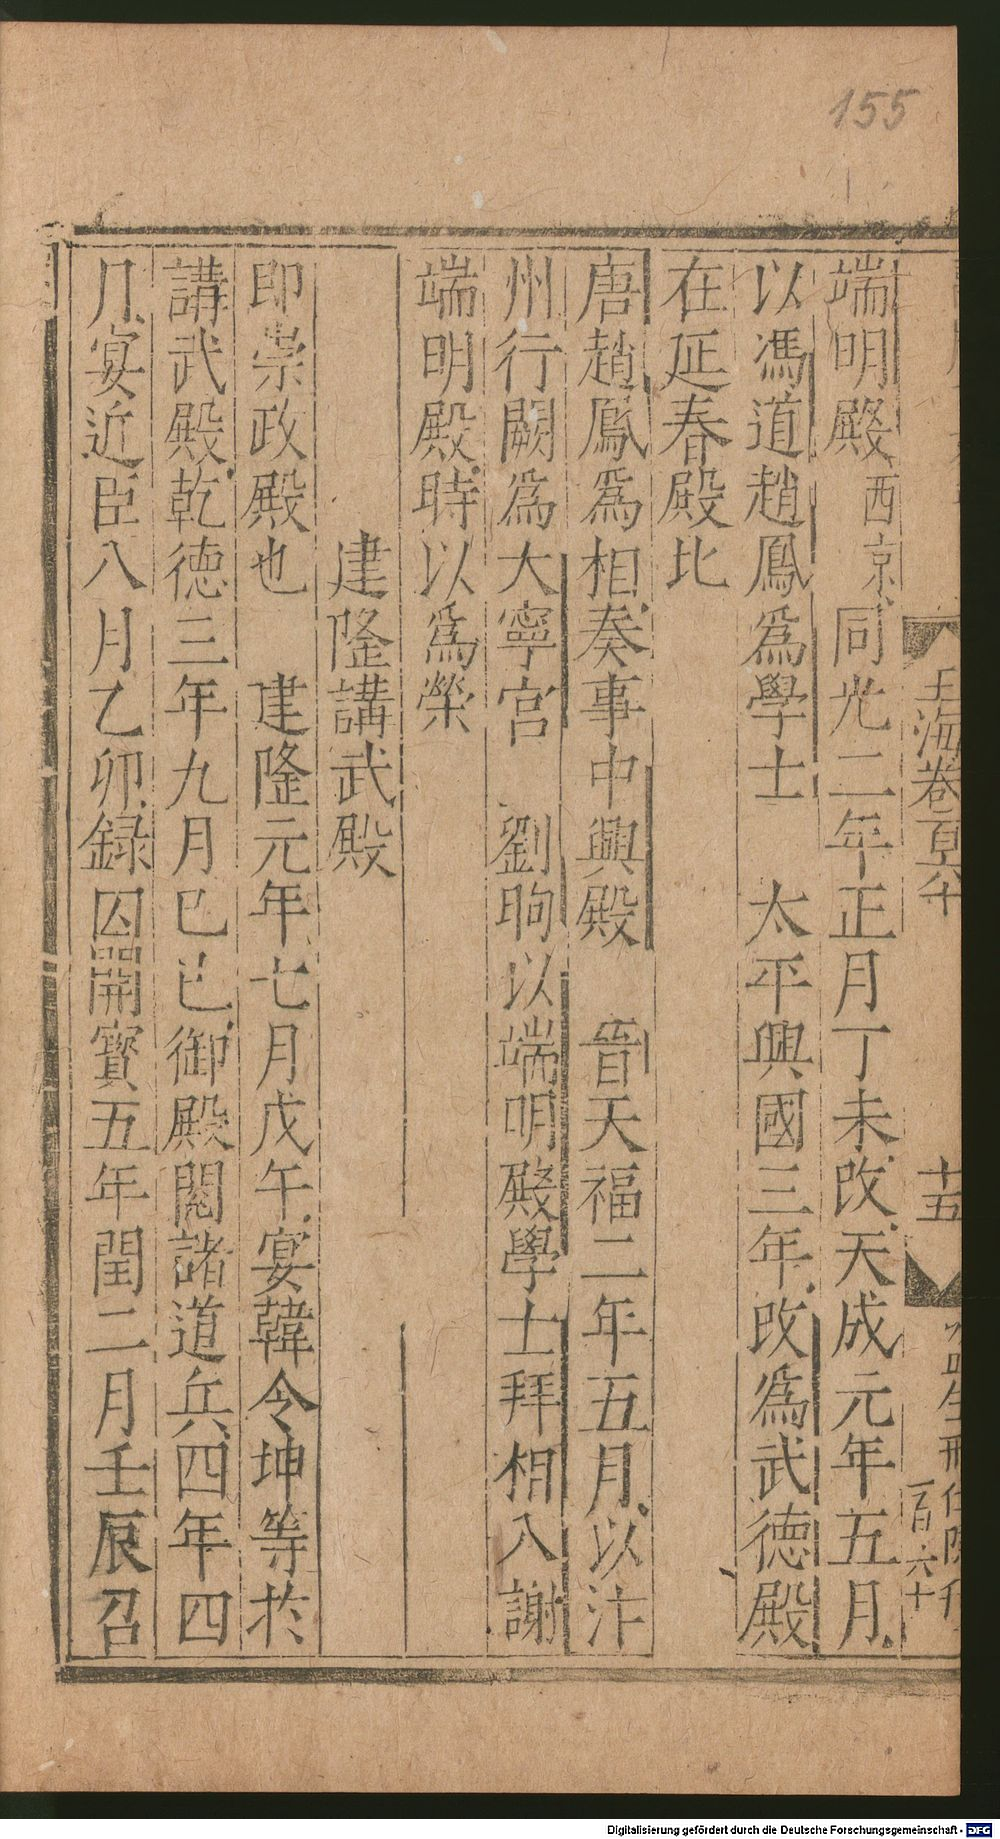 155
玉海卷百六十
十五
一百六十
端明殿西京同光二年正月丁未改天成元年五月
以馮道趙鳳爲學士 太平興國三年改爲武德殿
在延春殿比
唐趙鳳爲相奏事中興殿 晉天福二年五月以汴
州行闕爲大寧宮 劉昫以端明殿學士拜相入謝
端明殿時以爲榮
建隆講武殿
即崇政殿也 建隆元年七月戊午宴韓令坤等於
講武殿乾德三年九月已巳御殿閱諸道兵四年四
月宴近臣八月乙卯錄囚開寶五年閏二月壬辰召
Digitalisierung gefördert durch die Deutsche Forschungsgemeinschaft - DFG